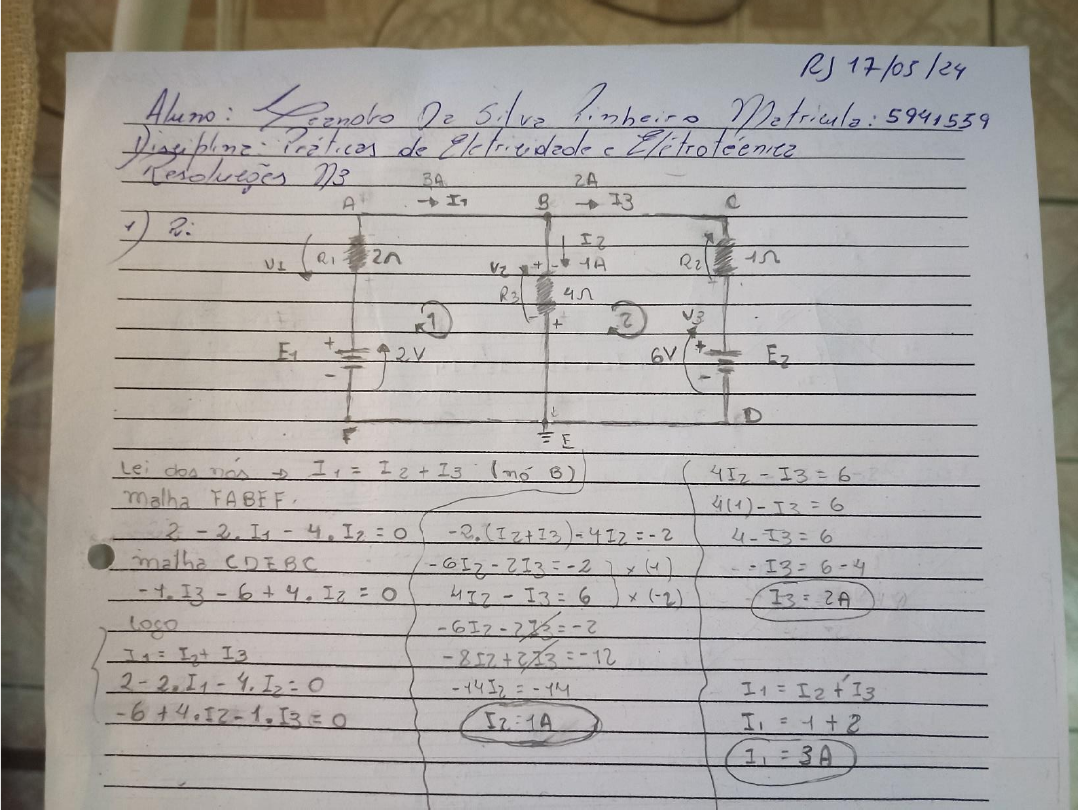 RJ 17/05/24
Aluno: Leandro Da Silva Pinheiro Matricula: 5941539
Disciplina: Práticas de Eletricidade e Elétrotécnica
Resoluções N3
3A 2A
A → I1 B → I3 C
1) 2:
I2
V1 R1 2Ω V2 + - 1A R2 1Ω
R3 4Ω
- +
1 2 V3
E1 + - 2V 6V + - E2
F E D
Lei dos nós → I1 = I2 + I3 (nó B)
malha FABEF.
2 - 2. I1 - 4. I2 = 0
malha CDEBC
-1. I3 - 6 + 4. I2 = 0
Logo
I1 = I2 + I3
2 - 2. I1 - 4. I2 = 0
-6 + 4. I2 - 1. I3 = 0
-2.(I2+I3) - 4I2 = -2
-6I2 - 2I3 = -2 ) x (1)
4I2 - I3 = 6 ) x (-2)
-6I2 - 2I3 = -2
-8I2 + 2I3 = -12
-14I2 = -14
I2 = 1A
4I2 - I3 = 6
4(1) - I3 = 6
4 - I3 = 6
- I3 = 6 - 4
I3 = 2A
I1 = I2 + I3
I1 = 1 + 2
I1 = 3A